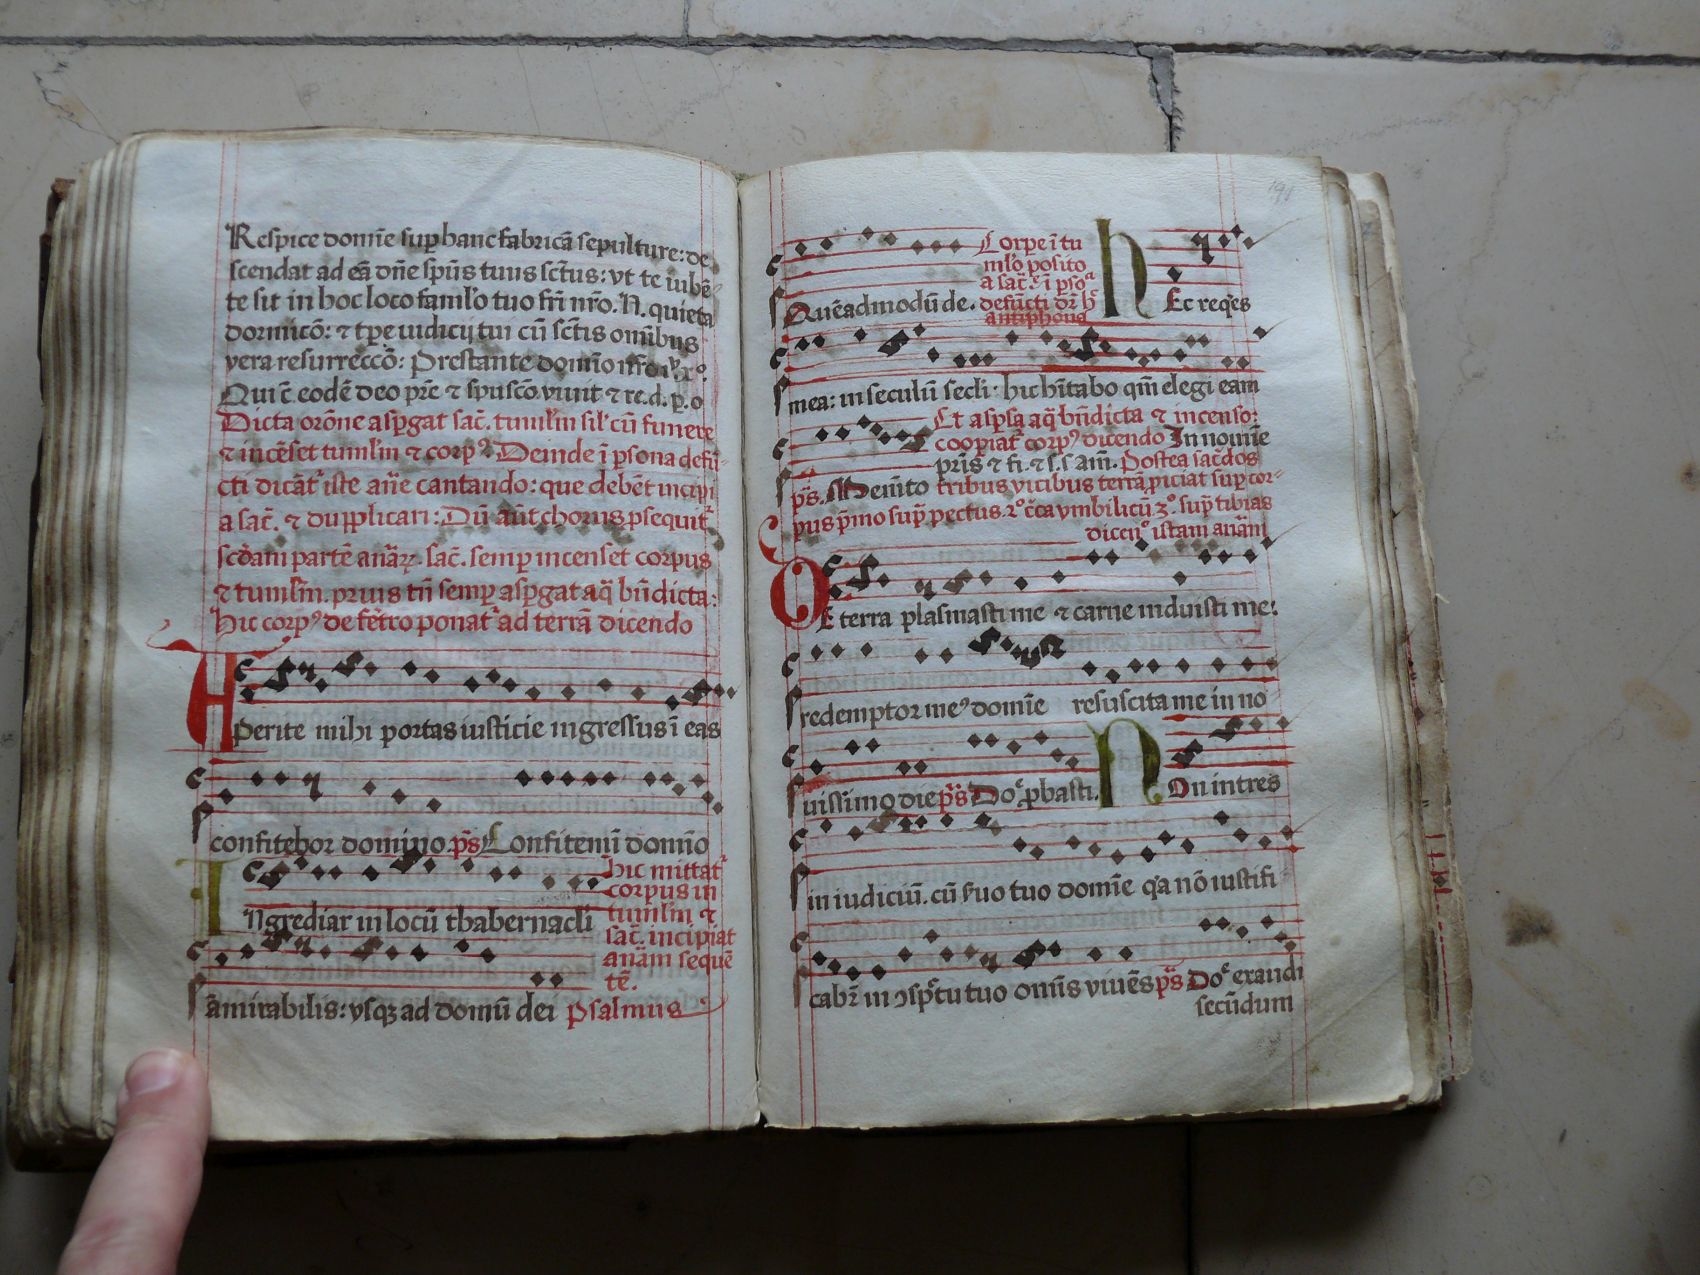 Respice domīe sup hanc fabricā sepulture: de
scendat ad eā dn̄e spūs tuus sct̄us: vt te iubē
te sit in hoc loco famlo tuo frī nr̄o. N. quieta
dormicō: & tpe iudicij tui cū sct̄is omībus
vera resurreccō: Prestante domīo nr̄o
Qui ē eodē deo pr̄e & spuscō viuit & rc. d. p. o
Dicta orōne aspgat sac̄. tumlm̄ sil' cū funere
& incēset tumlm̄ & corpꝰ. Deinde ī psona defū
cti dicāt iste an̄e cantando: que debēt incipi
a sac̄. & dupplicari: Dū aūt chorus psequit
scd̄am partē anāꝝ. sac̄. semp incenset corpus
& tumlm̄. prius tn̄ semp aspgat aq̄ bn̄dicta:
Hic corpꝰ de fētro ponat ad terrā dicendo
APerite mihi portas iusticie ingressus ī eas
confitebor domino. ps̄ Confitemī domīo
INgrediar in locū thabernacli
hic mittat
corpus in
tumlm̄ &
sac̄. incipiat
anam̄ sequē
tē.
āmirabilis: vsqꝫ ad domū dei Psalmus
191
Quēadmodū de.
Corpe ī tu
mlo posito
a sac̄. ī pso
defūcti dr̄ h
antiphona
hEc reqes
mea: in seculū secli: hic hītabo qm̄ elegi eam
Et aspsa aq̄ bn̄dicta & incenso:
coopiat corpꝰ dicendo In nomīe
pr̄is & fi. & s. s am̄. Postea sac̄dos
ps̄. Memīto tribus vicibus terrā piciat sup cor-
pus pmo sup pectus. 2º c̄ca vmbilicū 3º. sup tibias
dicen istam anam̄
DE terra plasmasti me & carne induisti me:
redemptor meꝰ domīe resuscita me in no
uissimo die ps̄ Do pbasti.
NOn intres
in iudiciū. cū suo tuo domīe qa nō iustifi
cabr̄ in ɔspc̄tu tuo omīs viuēs ps̄ Do exaudi
secūdum